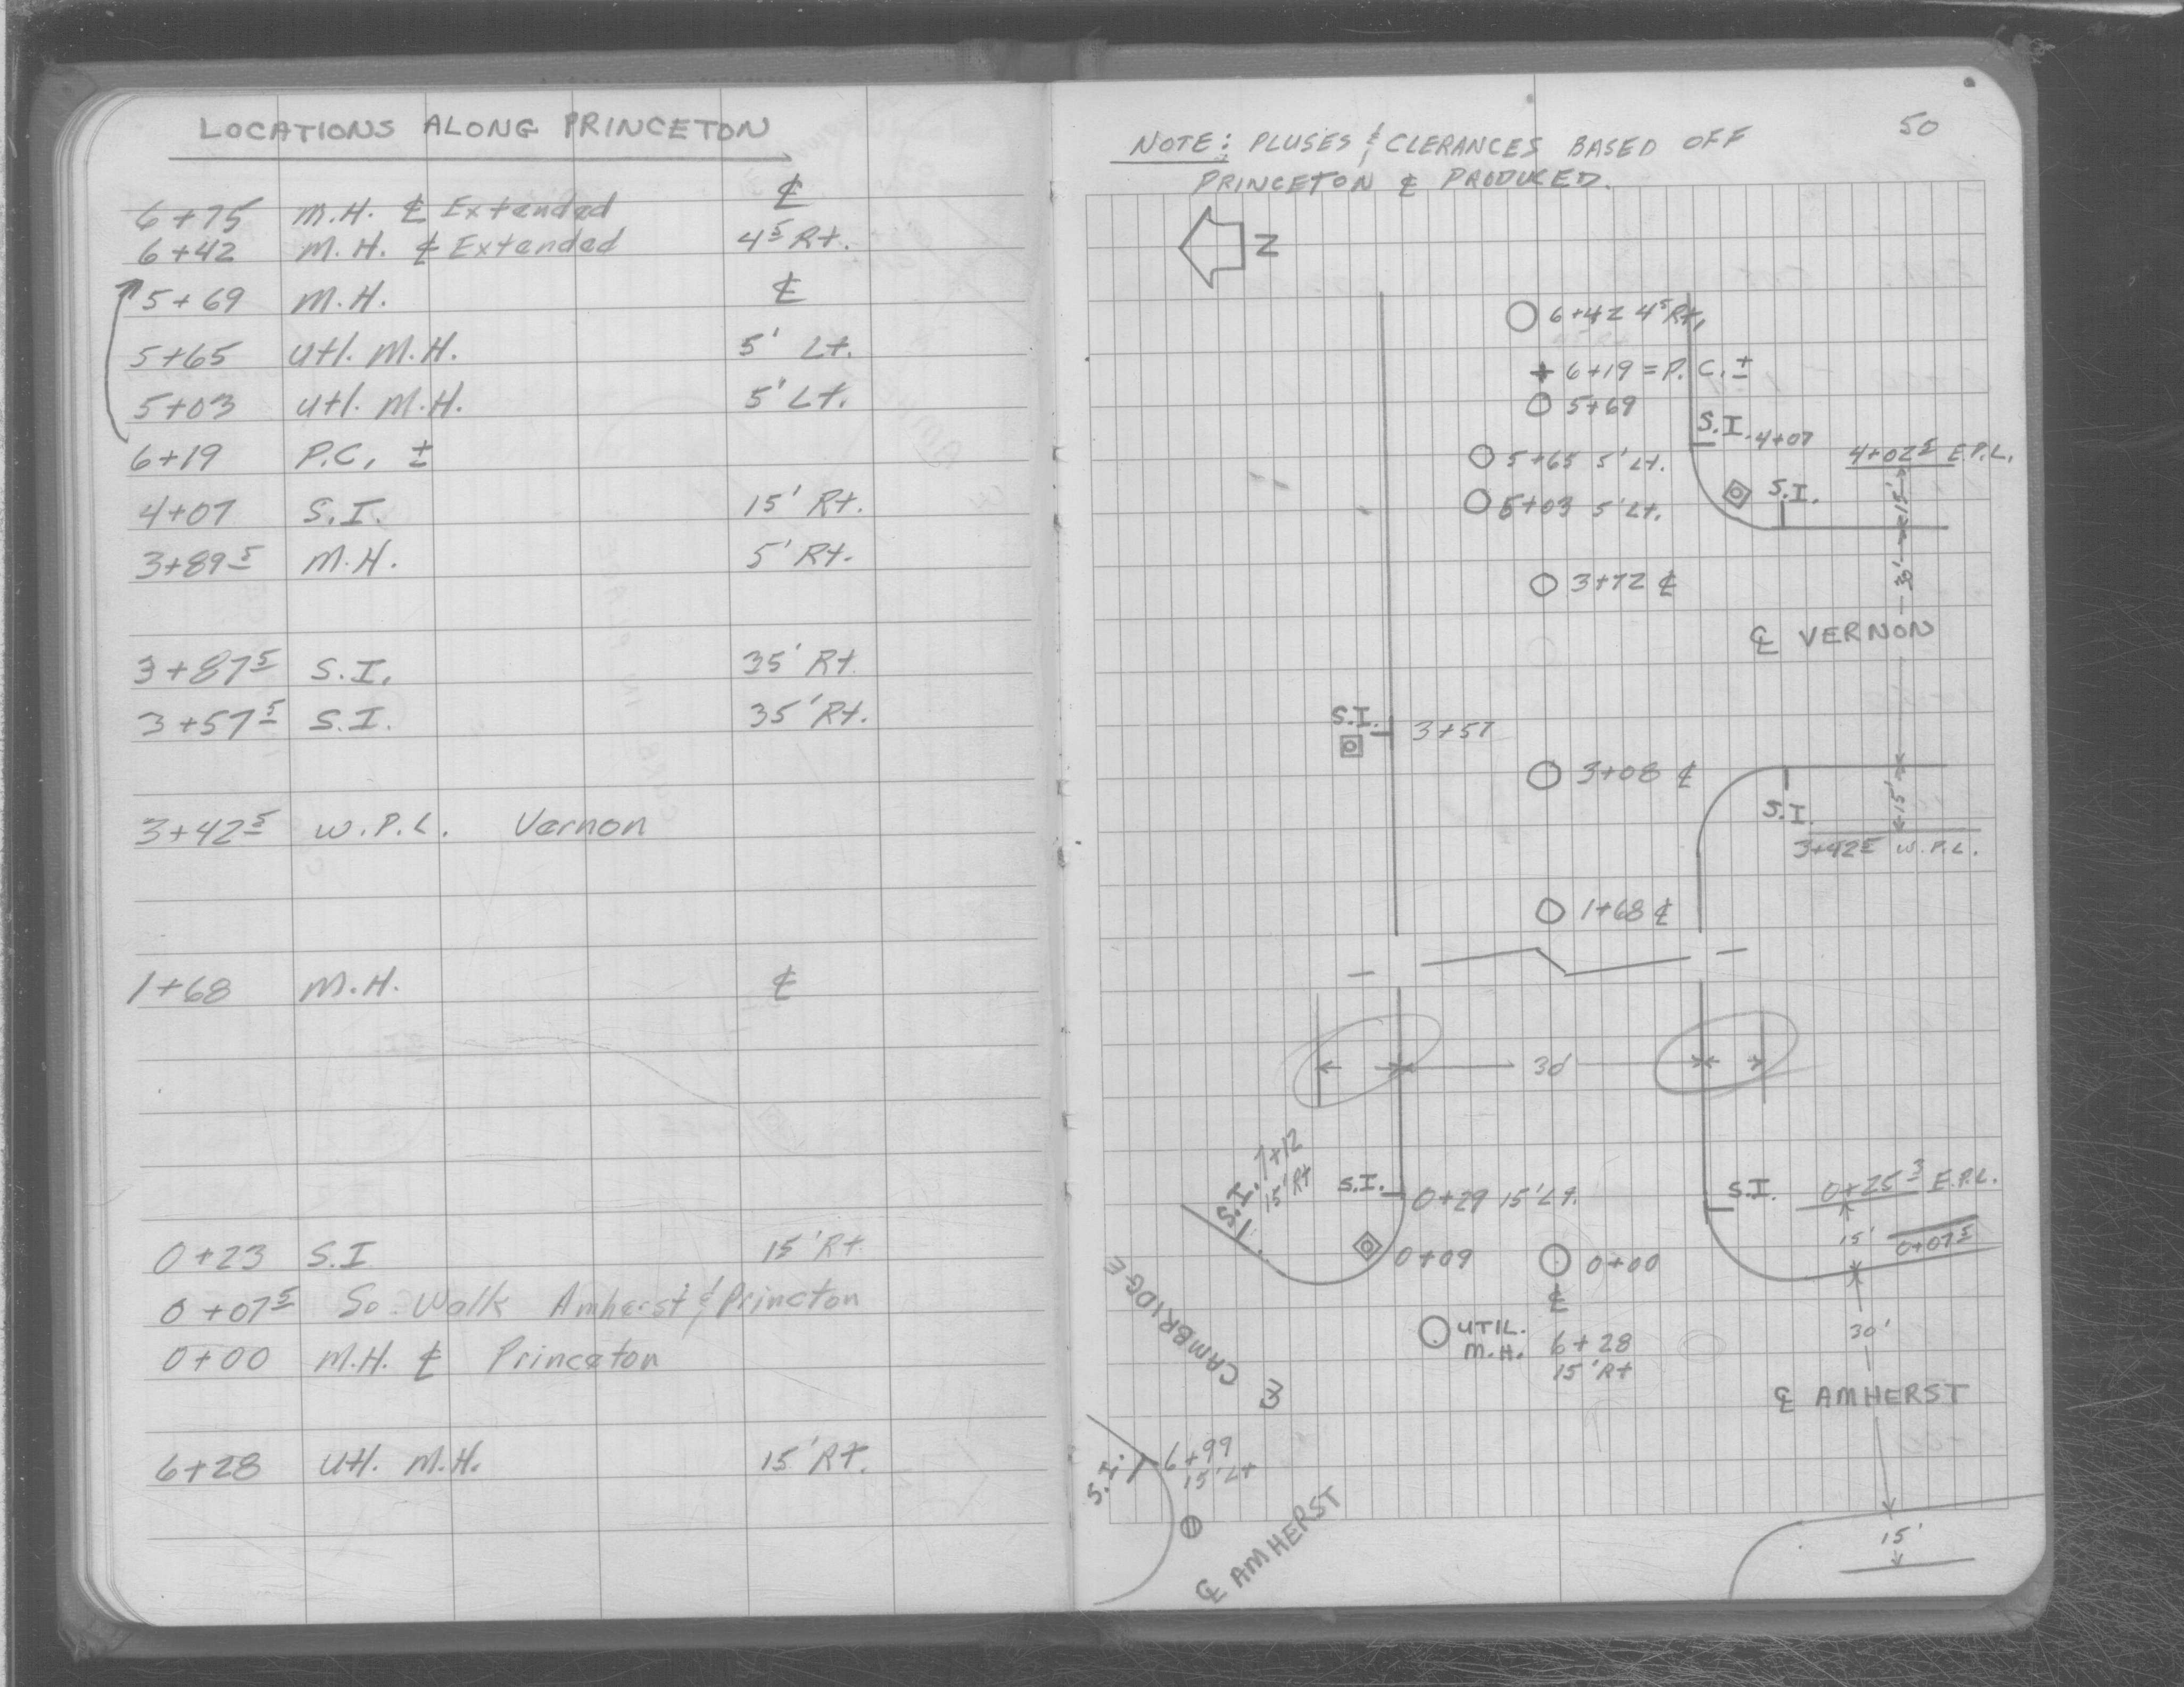 LOCATIONS ALONG PRINCETON
6+75 M.H. ℄ Extended ℄
6+42 M.H. ℄ Extended 4⁵ Rt.
5+69 M.H. ℄
5+65 Utl. M.H. 5' Lt.
5+03 Utl. M.H. 5' Lt.
6+19 P.C. ±
4+07 S.I. 15' Rt.
3+89⁵ M.H. 5' Rt.
3+87⁵ S.I. 35' Rt.
3+57⁵ S.I. 35' Rt.
3+42⁵ W.P.L. Vernon
1+68 M.H. ℄
0+23 S.I 15' Rt
0+07⁵ So. Walk Amherst & Princton
0+00 M.H. ℄ Princeton
6+28 Utl. M.H. 15' Rt.
50
NOTE: PLUSES & CLERANCES BASED OFF
PRINCETON ℄ PRODUCED.
N
6+42 4⁵ Rt.
6+19 = P.C. ±
5+69
S.I. 4+07
4+02⁵ E.P.L.
5+65 5' Lt.
S.I.
15'
5+03 5' Lt.
3+72 ℄
30'
℄ VERNON
S.I. 3+57
3+08 ℄
S.I.
15'
3+42⁵ W.P.L.
1+68 ℄
30'
S.I. 7+12
15' Rt
S.I. 0+29 15' Lt.
S.I.
0+25³ E.P.L.
15'
0+07⁵
0+09
0+00
℄
℄ CAMBRIDGE
UTIL.
M.H. 6+28
15' Rt
30'
℄ AMHERST
S.I. 6+99
15' Lt
℄ AMHERST
15'